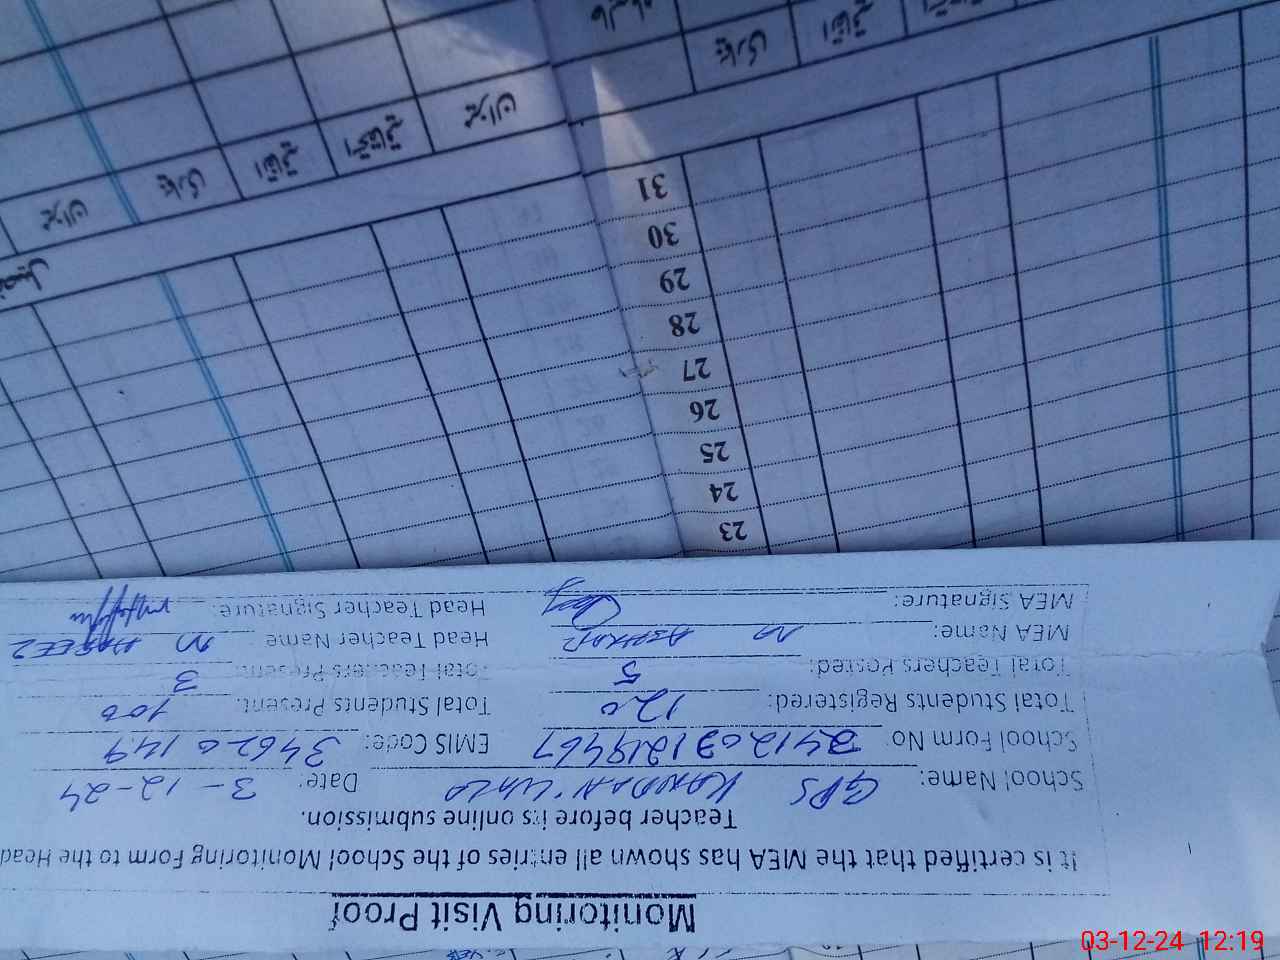 Monitoring Visit Proof
It is certified that the MEA has shown all entries of the School Monitoring Form to the Head
Teacher before its online submission.
School Name: GPS Date: 3-12-24
School Form No: 2412031219467 EMIS Code: 34620149
Total Students Registered: 120 Total Students Present: 100
Total Teachers Posted: 5 Total Teachers Present: 3
MEA Name: M ASGHAR Head Teacher Name: M HAFEEZ
MEA Signature: Head Teacher Signature:
23
24
25
26
27
28
29
30
31
میزان
سابقہ
میزان
سابقہ
03-12-24 12:19